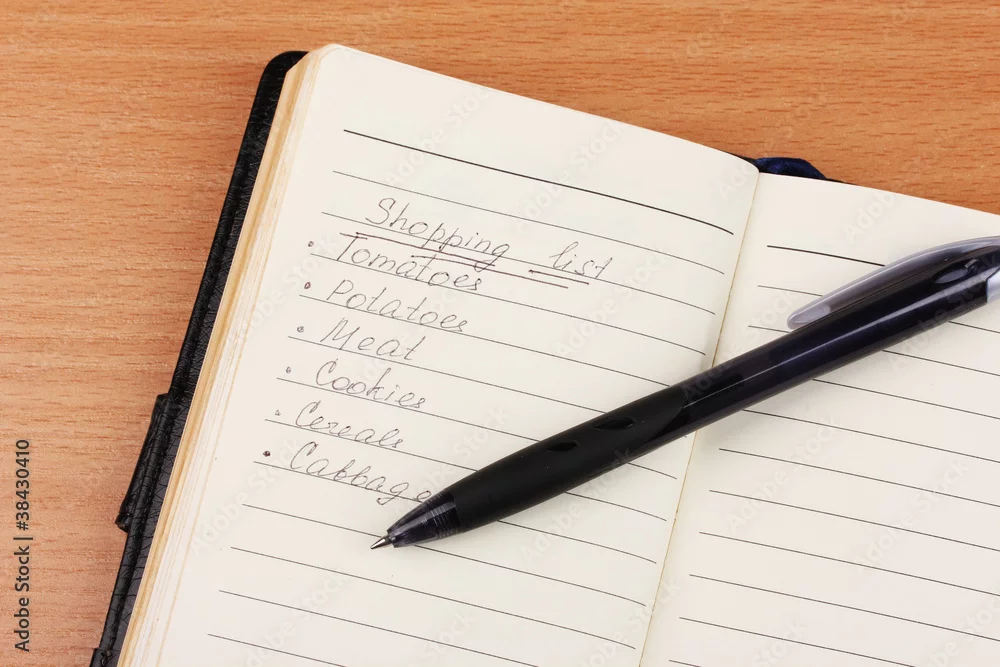 Shopping list
• Tomatoes
• Potatoes
• Meat
• Cookies
• Cereals
• Cabbage
Adobe Stock | #38430410